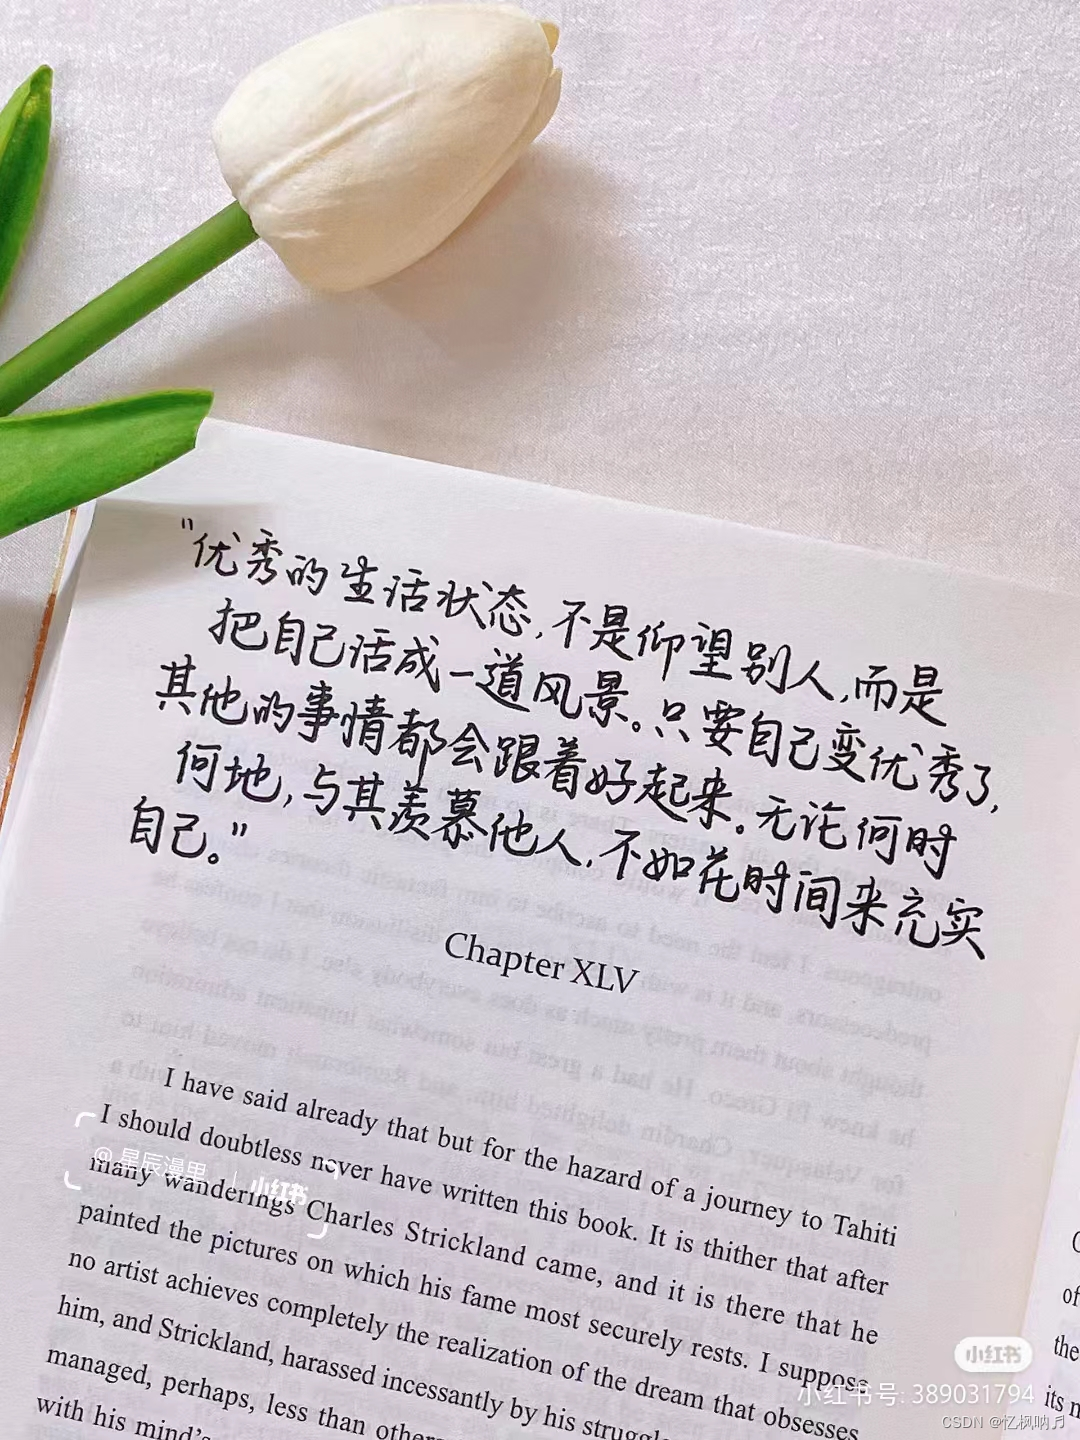 "优秀的生活状态,不是仰望别人,而是
把自己活成一道风景。只要自己变优秀了,
其他的事情都会跟着好起来。无论何时
何地,与其羡慕他人,不如花时间来充实
自己。"
Chapter XLV
I have said already that but for the hazard of a journey to Tahiti
I should doubtless never have written this book. It is thither that after
many wanderings Charles Strickland came, and it is there that he
painted the pictures on which his fame most securely rests. I suppose
no artist achieves completely the realization of the dream that obsesses
him, and Strickland, harassed incessantly by his struggle
managed, perhaps, less than other
with his mind's
of
the
its
@星辰漫里
小红书
小红书
小红书号: 389031794
CSDN @忆枫呐♬